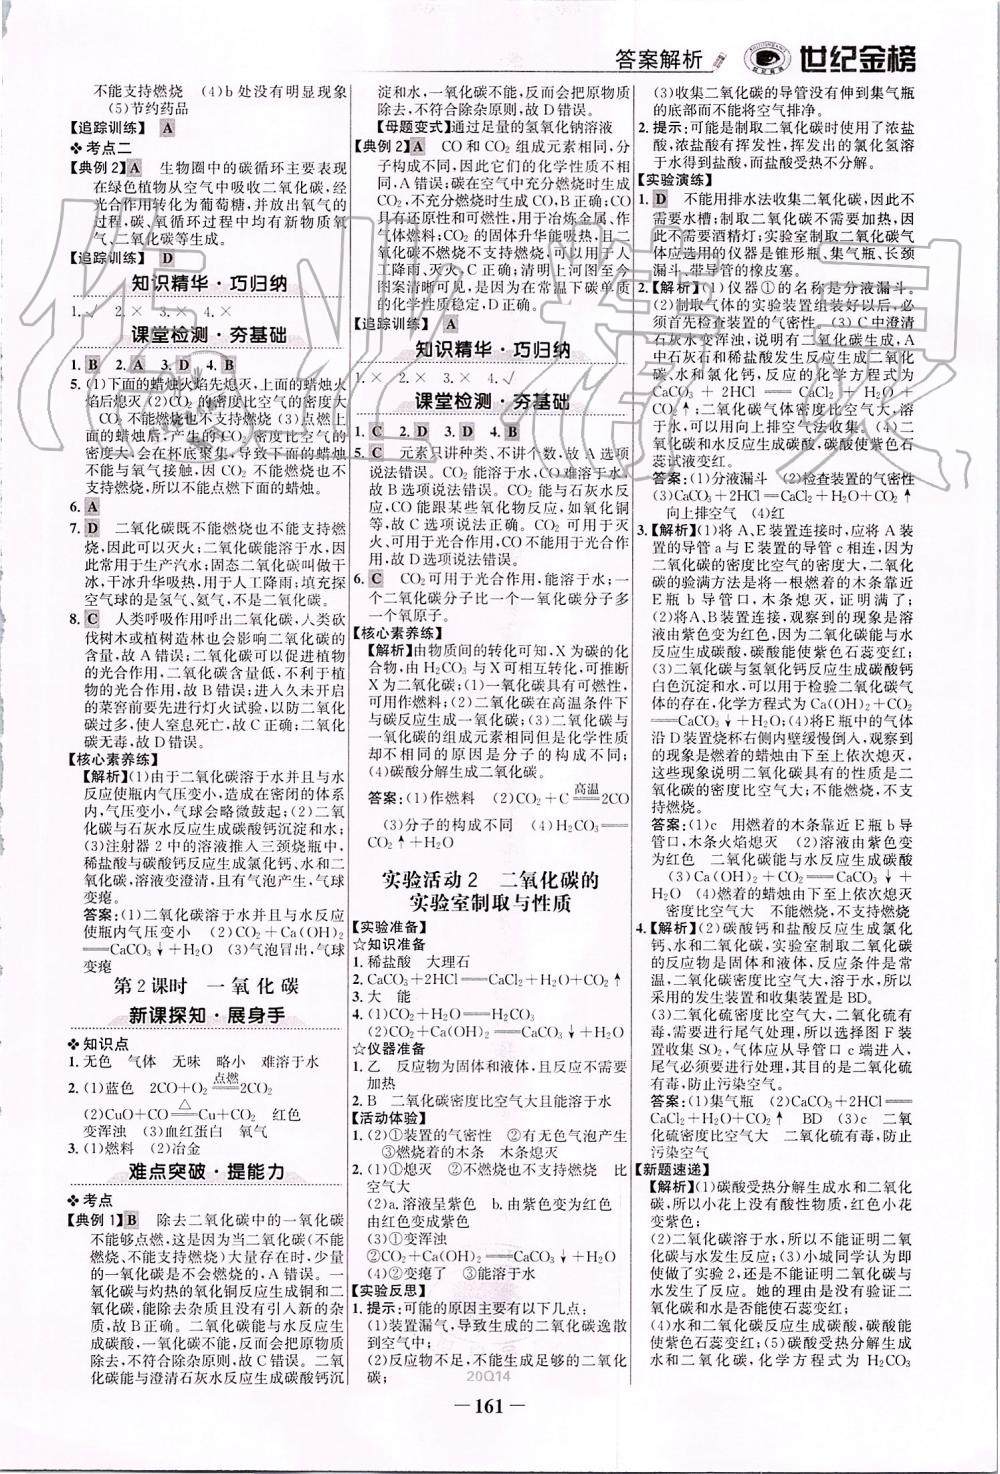 答案解析 世纪金榜
不能支持燃烧 (4)b处没有明显现象
(5)节约药品
【追踪训练】 A
❖考点二
【典例2】A 生物圈中的碳循环主要表现
在绿色植物从空气中吸收二氧化碳,经
光合作用转化为葡萄糖,并放出氧气的
过程,碳、氧循环过程中均有新物质氧
气、二氧化碳等生成。
【追踪训练】 D
知识精华·巧归纳
1.√ 2.× 3.× 4.×
课堂检测·夯基础
1. B 2. A 3. D 4. B
5.(1)下面的蜡烛火焰先熄灭,上面的蜡烛火
焰后熄灭 (2)CO₂的密度比空气的密度大
CO₂不能燃烧也不支持燃烧 (3)点燃上
面的蜡烛后,产生的CO₂密度比空气的
密度大会在杯底聚集,导致下面的蜡烛
不能与氧气接触,因CO₂不能燃烧也不
支持燃烧,所以不能点燃下面的蜡烛。
6. A
7. D 二氧化碳既不能燃烧也不能支持燃
烧,因此可以灭火;二氧化碳能溶于水,因
此常用于生产汽水;固态二氧化碳叫做干
冰,干冰升华吸热,用于人工降雨;填充探
空气球的是氢气、氦气,不是二氧化碳。
8. C 人类呼吸作用呼出二氧化碳,人类砍
伐树木或植树造林也会影响二氧化碳的含
量,故A错误;二氧化碳可以促进植物
的光合作用,二氧化碳含量低,不利于植
物的光合作用,故B错误;进入久未开启
的菜窖前要先进行灯火试验,以防二氧化
碳过多,使人窒息死亡,故C正确;二氧化
碳无毒,故D错误。
【核心素养练】
【解析】(1)由于二氧化碳溶于水并且与水
反应使瓶内气压变小,造成在密闭的体系
内,气压变小,气球会略微鼓起;(2)二氧
化碳与石灰水反应生成碳酸钙沉淀和水;
(3)注射器2中的溶液推入三颈烧瓶中,
稀盐酸与碳酸钙反应生成氯化钙、水和二
氧化碳,溶液变澄清,且有气泡产生,气球
变瘪。
答案:(1)二氧化碳溶于水并且与水反应
使瓶内气压变小 (2)CO₂+Ca(OH)₂
══CaCO₃↓+H₂O (3)气泡冒出,气球
变瘪
第2课时 一氧化碳
新课探知·展身手
❖知识点
1.无色 气体 无味 略小 难溶于水
2.(1)蓝色 2CO+O₂ ══点燃 2CO₂
(2)CuO+CO ══△ Cu+CO₂ 红色
变浑浊 (3)血红蛋白 氧气
3.(1)燃料 (2)冶金
难点突破·提能力
❖考点
【典例1】B 除去二氧化碳中的一氧化碳
不能够点燃,这是因为当二氧化碳(不能
燃烧、不能支持燃烧)大量存在时,少量
的一氧化碳是不会燃烧的,A错误。一
氧化碳与灼热的氧化铜反应生成铜和二
氧化碳,能除去杂质且没有引入新的杂
质,故B正确。二氧化碳能与水反应生
成碳酸,一氧化碳不能,反而会把原物质
除去,不符合除杂原则,故C错误。二氧
化碳能与澄清石灰水反应生成碳酸钙沉
淀和水,一氧化碳不能,反而会把原物质
除去,不符合除杂原则,故D错误。
【母题变式】通过足量的氢氧化钠溶液
【典例2】A CO和CO₂组成元素相同,分
子构成不同,因此它们的化学性质不同,
A错误;碳在空气中充分燃烧时生成
CO₂,不充分燃烧时生成CO,B正确;CO
具有还原性和可燃性,用于冶炼金属、作
气体燃料;CO₂的固体升华能吸热,且二
氧化碳不燃烧不支持燃烧,可以用于人
工降雨、灭火,C正确;清明上河图至今
图案清晰可见,是因为在常温下碳单质
的化学性质稳定,D正确。
【追踪训练】 A
知识精华·巧归纳
1.× 2.× 3.× 4.√
课堂检测·夯基础
1. C 2. D 3. D 4. B
5. C 元素只讲种类、不讲个数,故A选项
说法错误。CO₂能溶于水,CO难溶于水,
故B选项说法错误。CO₂能与石灰水反
应,CO能跟某些氧化物反应,如氧化铜
等,故C选项说法正确。CO₂可用于灭
火、可用于光合作用,CO不能用于光合作
用,故D选项说法错误。
6. C CO₂可用于光合作用,能溶于水;一
个二氧化碳分子比一个一氧化碳分子多
一个氧原子。
【核心素养练】
【解析】由物质间的转化可知,X为碳的化
合物,由H₂CO₃与X可相互转化,可推断
X为二氧化碳;(1)一氧化碳具有可燃性,
可用作燃料;(2)二氧化碳在高温条件下
与碳反应生成一氧化碳;(3)二氧化碳与
一氧化碳的组成元素相同但是化学性质
却不相同的原因是分子的构成不同;
(4)碳酸分解生成二氧化碳。
答案:(1)作燃料 (2)CO₂+C ══高温 2CO
(3)分子的构成不同 (4)H₂CO₃══
CO₂↑+H₂O
实验活动2 二氧化碳的
实验室制取与性质
【实验准备】
☆知识准备
1.稀盐酸 大理石
2.CaCO₃+2HCl══CaCl₂+H₂O+CO₂↑
3.大 能
4.(1)CO₂+H₂O══H₂CO₃
(2)CO₂+Ca(OH)₂══CaCO₃↓+H₂O
☆仪器准备
1.乙 反应物为固体和液体,且反应不需要
加热
2.B 二氧化碳密度比空气大且能溶于水
【活动体验】
1.(2)①装置的气密性 ②有无色气泡产生
③燃烧的木条 燃烧的木条熄灭
2.(1)①熄灭 ②不燃烧也不支持燃烧 比
空气大
(2)a.溶液呈紫色 b.由紫色变为红色
由红色变成紫色
(3)①变浑浊
②CO₂+Ca(OH)₂══CaCO₃↓+H₂O
(4)②变瘪了 ③能溶于水
【实验反思】
1.提示:可能的原因主要有以下几点:
(1)装置漏气,导致生成的二氧化碳逸散
到空气中;
(2)反应物不足,不能生成足够的二氧化
碳;
(3)收集二氧化碳的导管没有伸到集气瓶
的底部而不能将空气排净。
2.提示:可能是制取二氧化碳时使用了浓盐
酸,浓盐酸有挥发性,挥发出的氯化氢溶
于水得到盐酸,而盐酸受热不分解。
【实验演练】
1. D 不能用排水法收集二氧化碳,因此不
需要水槽;制取二氧化碳不需要加热,因
此不需要酒精灯;实验室制取二氧化碳气
体应选用的仪器是锥形瓶、集气瓶、长颈
漏斗、带导管的橡皮塞。
2.【解析】(1)仪器①的名称是分液漏斗。
(2)制取气体的实验装置组装好以后,必
须首先检查装置的气密性。(3)C中澄清
石灰水变浑浊,说明有二氧化碳生成,A
中石灰石和稀盐酸发生反应生成二氧化
碳、水和氯化钙,反应的化学方程式为
CaCO₃+2HCl══CaCl₂+H₂O+
CO₂↑;二氧化碳气体密度比空气大,溶
于水,可以用向上排空气法收集。(4)二
氧化碳和水反应生成碳酸,碳酸使紫色石
蕊试液变红。
答案:(1)分液漏斗 (2)检查装置的气密性
(3)CaCO₃+2HCl══CaCl₂+H₂O+CO₂↑
向上排空气 (4)红
3.【解析】(1)将A、E装置连接时,应将A装
置的导管a与E装置的导管c相连,因为
二氧化碳的密度比空气的密度大,二氧化
碳的验满方法是将一根燃着的木条靠近
E瓶b导管口,木条熄灭,证明满了;
(2)将A、B装置连接,观察到的现象是溶
液由紫色变为红色,因为二氧化碳能与水
反应生成碳酸,碳酸能使紫色石蕊变红;
(3)二氧化碳与氢氧化钙反应生成碳酸钙
白色沉淀和水,可以用于检验二氧化碳气
体的存在,化学方程式为Ca(OH)₂+CO₂
══CaCO₃↓+H₂O;(4)将E瓶中的气体
沿D装置烧杯右侧内壁缓慢倒入,观察到
的现象是燃着的蜡烛由下至上依次熄灭,
这些现象说明二氧化碳具有的性质是二
氧化碳的密度比空气大;不能燃烧,不支
持燃烧。
答案:(1)c 用燃着的木条靠近E瓶b导
管口,木条火焰熄灭 (2)溶液由紫色变
为红色 二氧化碳能与水反应生成碳酸
(3)Ca(OH)₂+CO₂══CaCO₃↓
+H₂O (4)燃着的蜡烛由下至上依次熄灭
密度比空气大 不能燃烧,不支持燃烧
4.【解析】(2)碳酸钙和盐酸反应生成氯化
钙、水和二氧化碳,实验室制取二氧化碳
的反应物是固体和液体,反应条件是常
温,二氧化碳密度比空气大,溶于水,所以
采用的发生装置和收集装置是BD。
(3)二氧化硫密度比空气大,二氧化硫有
毒,需要进行尾气处理,所以选择图F装
置收集SO₂,气体应从导管口c端进入,
尾气必须要进行处理,其目的是二氧化硫
有毒,防止污染空气。
答案:(1)集气瓶 (2)CaCO₃+2HCl══
CaCl₂+H₂O+CO₂↑ BD (3)c 二氧
化硫密度比空气大 二氧化硫有毒,防止
污染空气
【新题速递】
【解析】(1)碳酸受热分解生成水和二氧化
碳,所以小花上没有酸性物质,红色小花
变紫色;
(2)二氧化碳溶于水,所以不能证明二氧化
碳与水发生反应;(3)小城同学认为即
使做了实验2,还是不能证明二氧化碳与
水发生了反应。她的理由是没有验证二
氧化碳和水是否能使石蕊变红。
(4)水和二氧化碳反应生成碳酸,碳酸能
使紫色石蕊变红;(5)碳酸受热分解生成
水和二氧化碳,化学方程式为H₂CO₃
20Q14
— 161 —
作业精灵